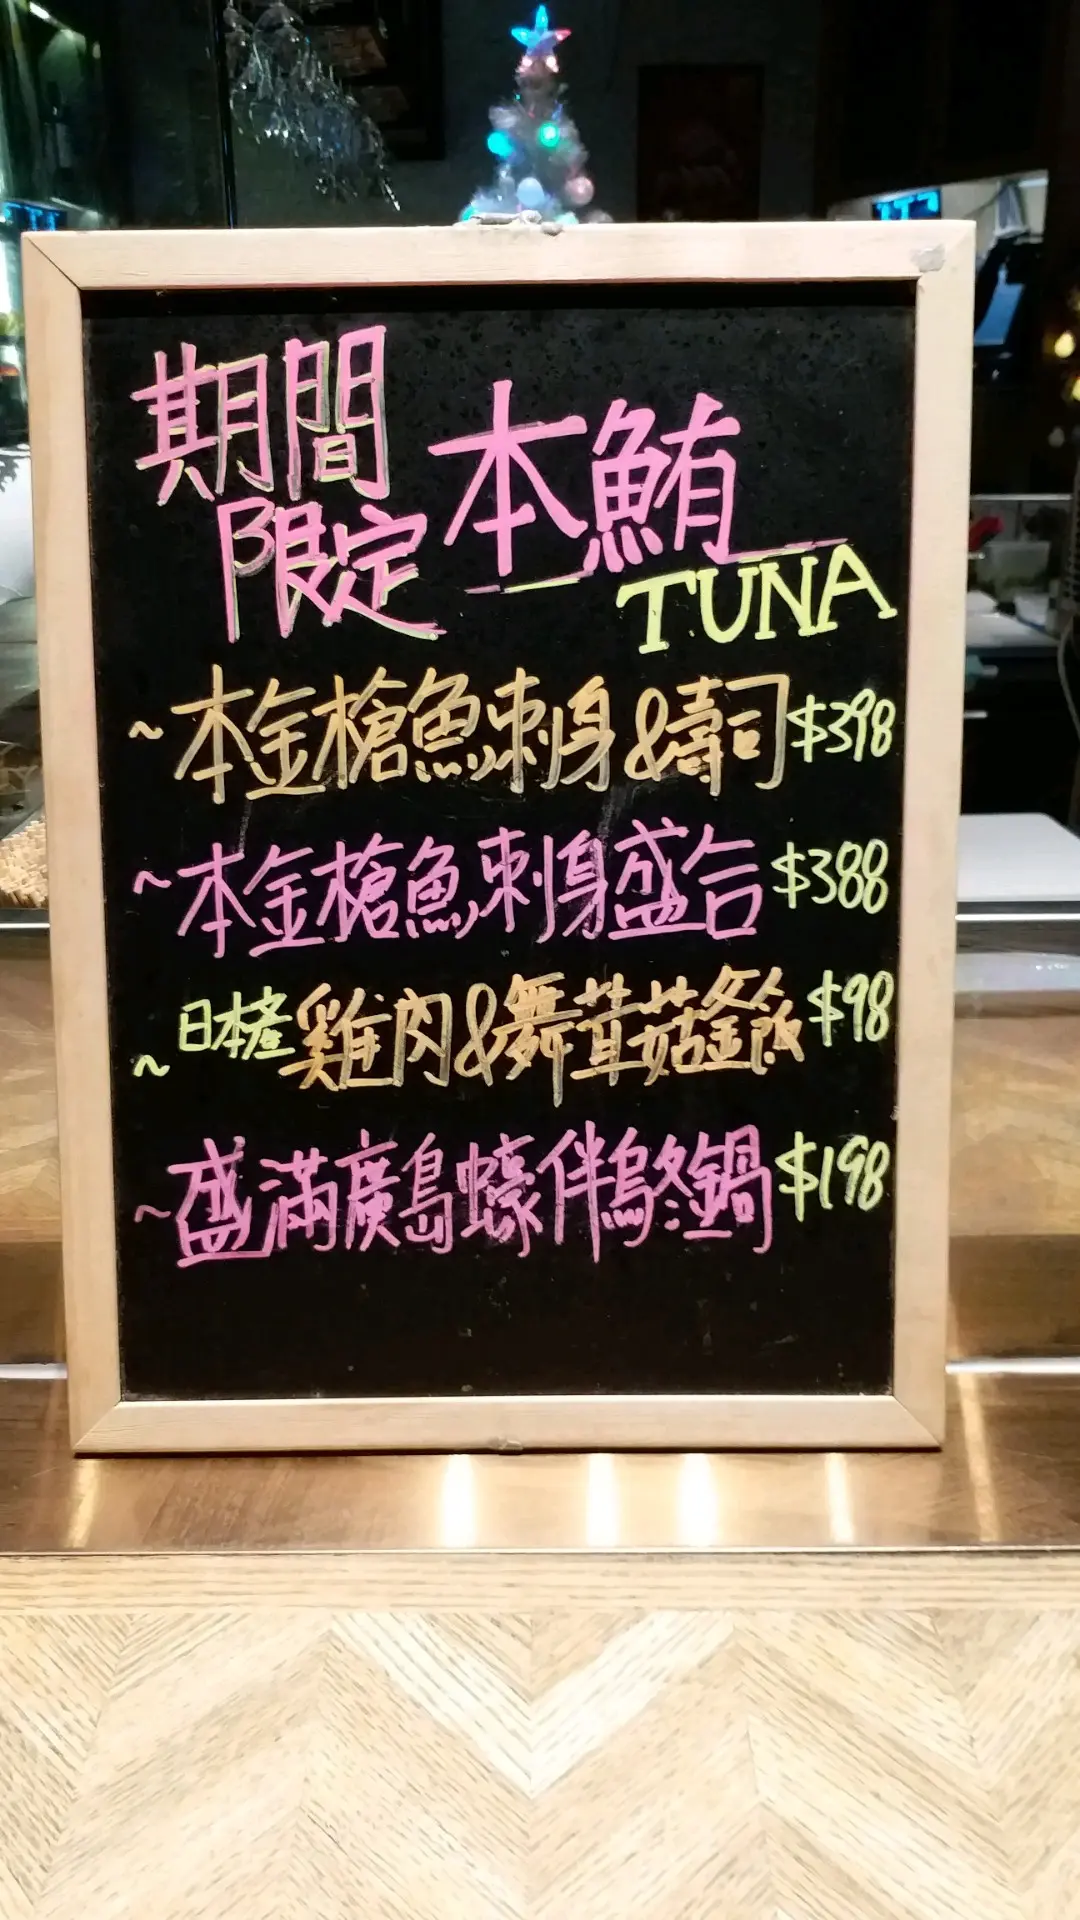 期間
限定
本鮪
TUNA
~本金槍魚刺身&壽司$398
~本金槍魚刺身盛合$388
~日本產雞肉&舞茸菇釜飯$98
~盛滿廣島蠔伴烏冬鍋$198